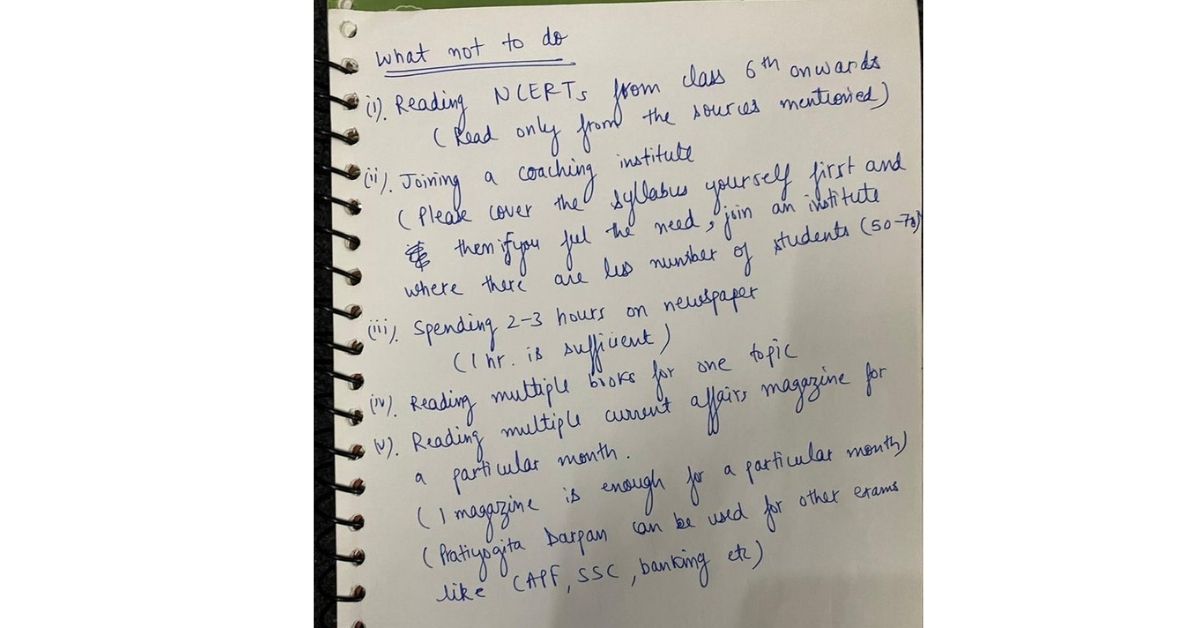 What not to do
(i). Reading NCERTs from class 6th onwards
(Read only from the sources mentioned)
(ii). Joining a coaching institute
(Please cover the syllabus yourself first and
then if you feel the need, join an institute
where there are less number of students (50-70)
(iii). Spending 2-3 hours on newspaper
(1 hr. is sufficient)
(iv). Reading multiple books for one topic
(v). Reading multiple current affairs magazine for
a particular month.
(1 magazine is enough for a particular month)
(Pratiyogita Darpan can be used for other exams
like CAPF, SSC, banking etc)